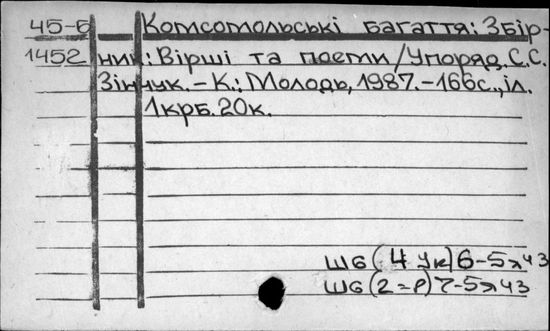 45-6 Комсомольські багаття: Збір-
1452 ник: Вірші та поеми / Упоряд. С.С.
Зінчук. – К.: Молодь, 1987. – 166с., іл.
1крб. 20к.
Ш6(4 Ук)6-5я43
Ш6(2=Р)7-5я43